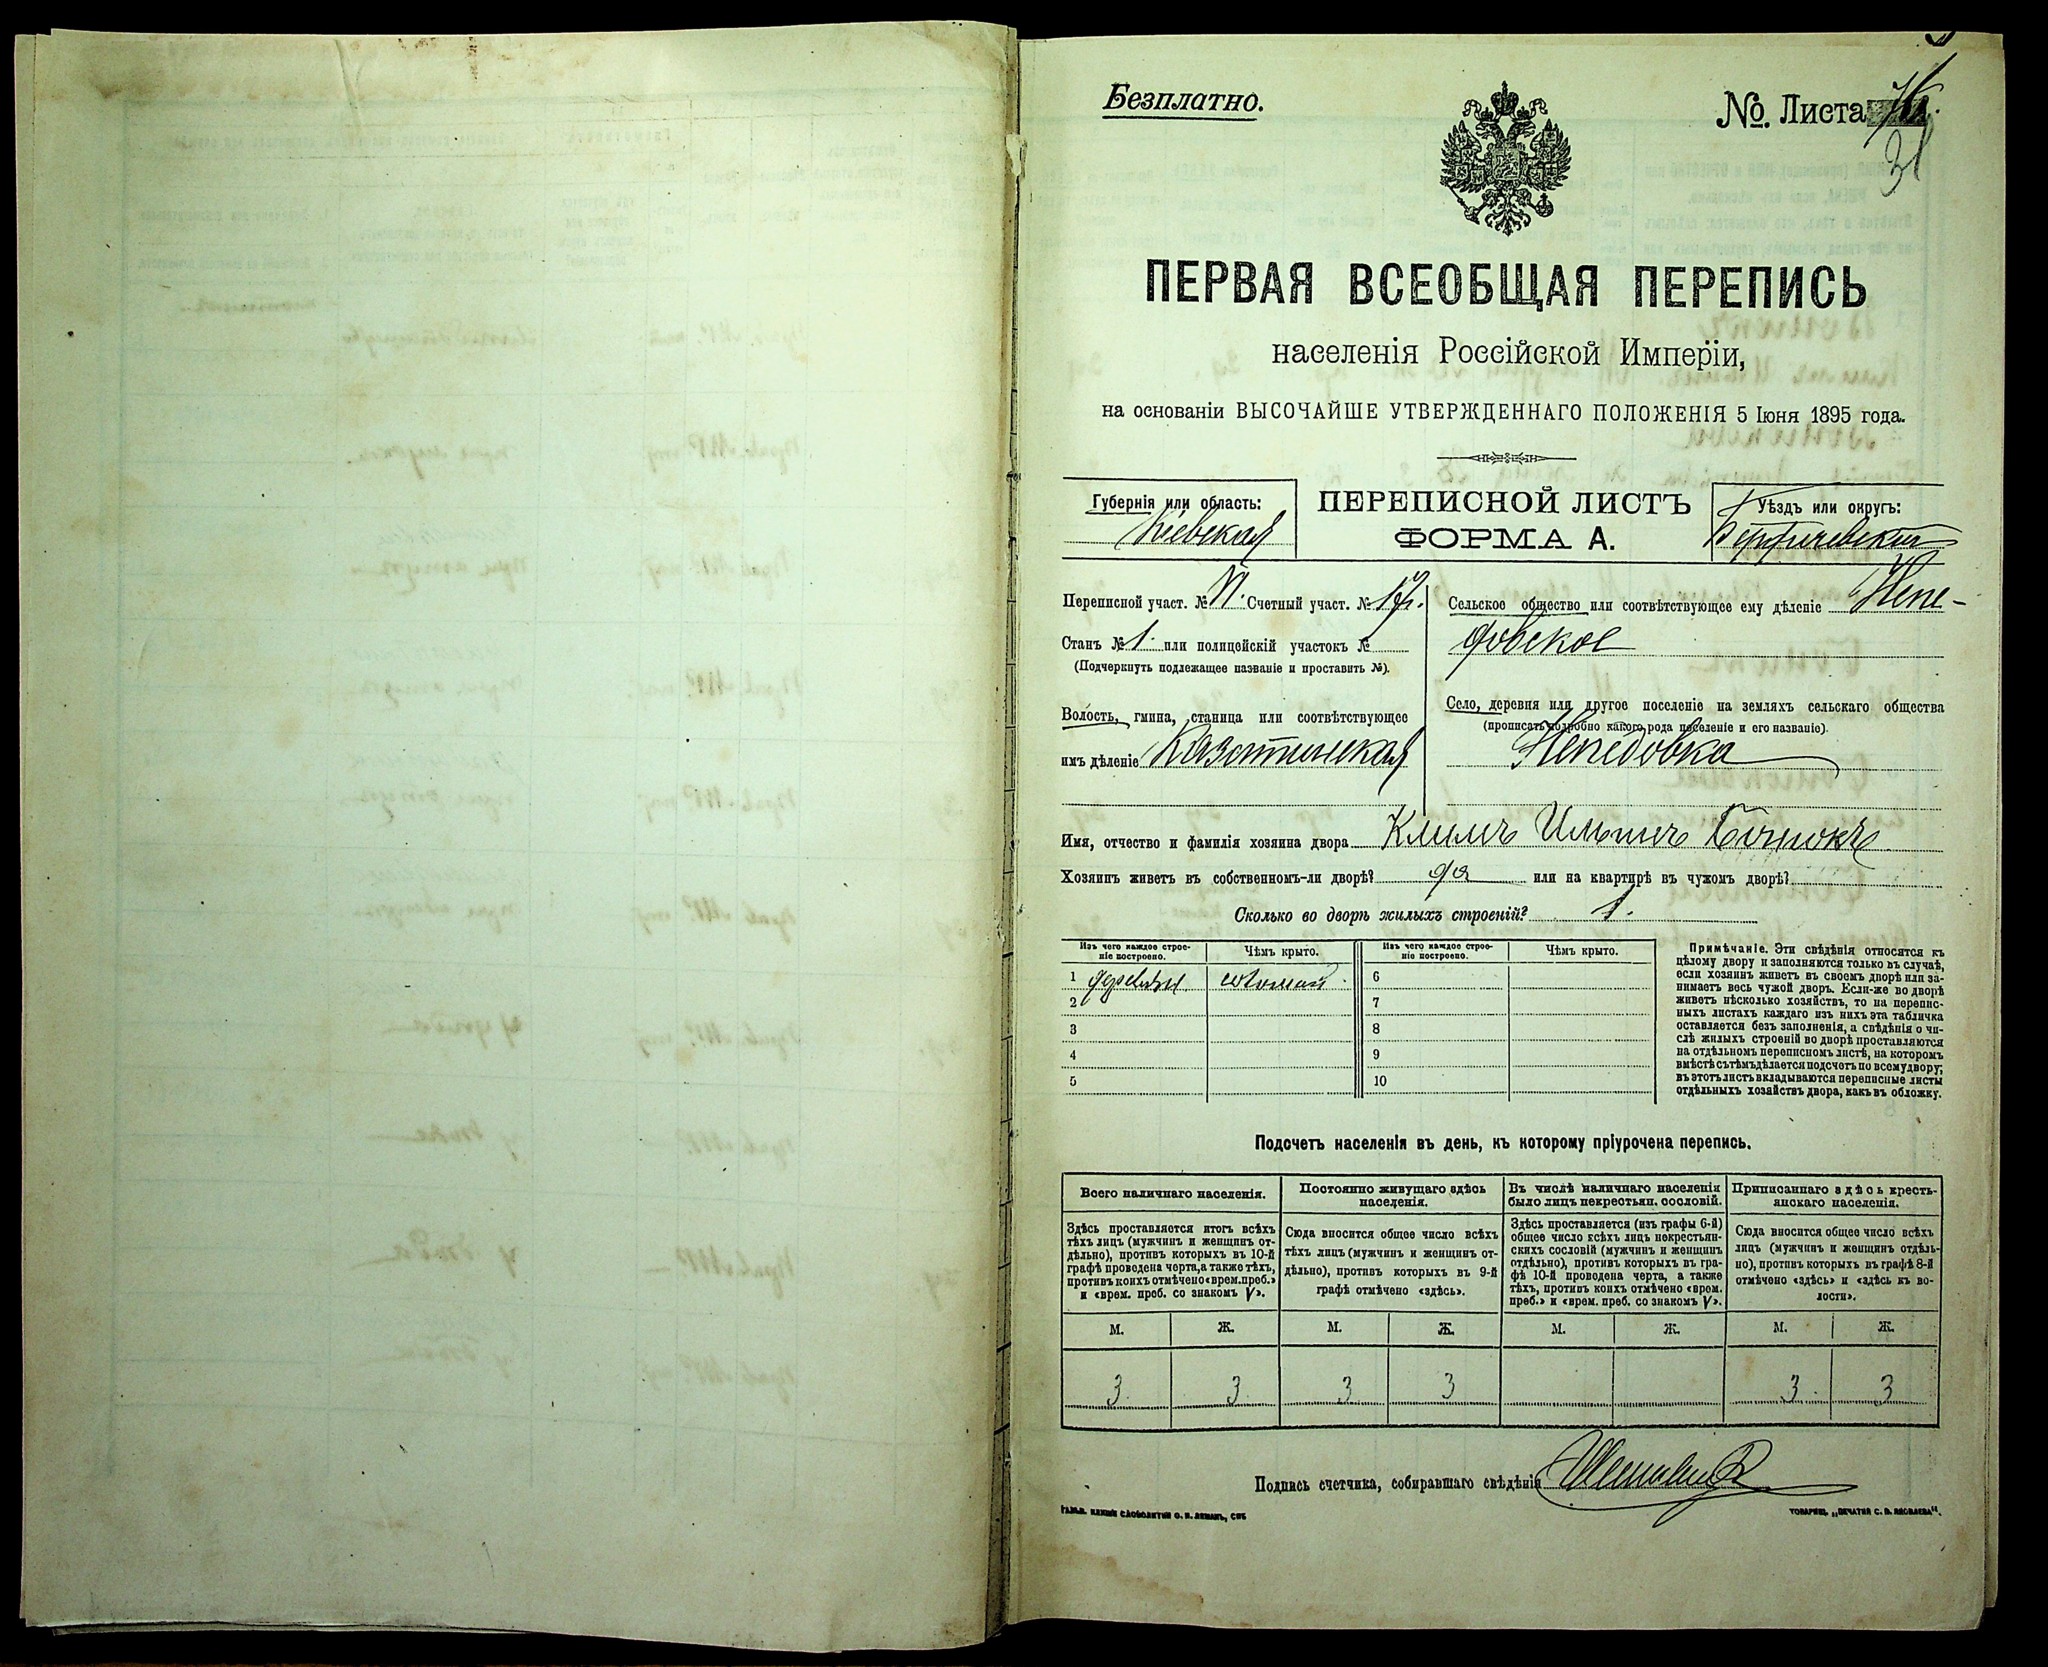 Безплатно.
№. Листа
31
ПЕРВАЯ ВСЕОБЩАЯ ПЕРЕПИСЬ
населенія Россійской Имперіи,
на основаніи ВЫСОЧАЙШЕ УТВЕРЖДЕННАГО ПОЛОЖЕНІЯ 5 Іюня 1895 года.
Губернія или область:
Кіевская
ПЕРЕПИСНОЙ ЛИСТЪ
ФОРМА А.
Уѣздъ или округъ:
Бердичевскій
Переписной участ. № Счетный участ. №
Станъ № 1. или полицейскій участокъ №
(Подчеркнуть подлежащее названіе и проставить №).
Волость, гмина, станица или соотвѣтствующее
имъ дѣленіе Казатинская
Сельское общество или соотвѣтствующее ему дѣленіе Непе-
довское
Село, деревня или другое поселеніе на земляхъ сельскаго общества
(прописать подробно какого рода поселеніе и его названіе).
Непедовка
Имя, отчество и фамилія хозяина двора Климъ Ильичъ
Хозяинъ живетъ въ собственномъ-ли дворѣ? да или на квартирѣ въ чужомъ дворѣ?
Сколько во дворѣ жилыхъ строеній? 1.
Изъ чего каждое строе-
ніе построено.
Чѣмъ крыто.
Изъ чего каждое строе-
ніе построено.
Чѣмъ крыто.
1 деревян. соломой 6
2 7
3 8
4 9
5 10
Примѣчаніе. Эти свѣдѣнія относятся къ
цѣлому двору и заполняются только въ случаѣ,
если хозяинъ живетъ въ своемъ дворѣ или за-
нимаетъ весь чужой дворъ. Если-же во дворѣ
живетъ нѣсколько хозяйствъ, то на перепис-
ныхъ листахъ каждаго изъ нихъ эта табличка
оставляется безъ заполненія, а свѣдѣнія о чи-
слѣ жилыхъ строеній во дворѣ проставляются
на отдѣльномъ переписномъ листѣ, на которомъ
вмѣстѣ съ тѣмъ дѣлается подсчетъ по всему двору;
въ этотъ листъ вкладываются переписные листы
отдѣльныхъ хозяйствъ двора, какъ въ обложку.
Подсчетъ населенія въ день, къ которому пріурочена перепись.
Всего наличнаго населенія.
Здѣсь проставляется итогъ всѣхъ
тѣхъ лицъ (мужчинъ и женщинъ от-
дѣльно), противъ которыхъ въ 10-й
графѣ проведена черта, а также тѣхъ,
противъ коихъ отмѣчено «врем. преб.»
и «врем. преб. со знакомъ V».
Постоянно живущаго здѣсь
населенія.
Сюда вносится общее число всѣхъ
тѣхъ лицъ (мужчинъ и женщинъ от-
дѣльно), противъ которыхъ въ 9-й
графѣ отмѣчено «здѣсь».
Въ числѣ наличнаго населенія
было лицъ некрестьян. сословій.
Здѣсь проставляется (изъ графы 6-й)
общее число всѣхъ лицъ некрестьян-
скихъ сословій (мужчинъ и женщинъ
отдѣльно), противъ которыхъ въ гра-
фѣ 10-й проведена черта, а также
тѣхъ, противъ коихъ отмѣчено «врем.
преб.» и «врем. преб. со знакомъ V».
Приписаннаго здѣсь кресть-
янскаго населенія.
Сюда вносится общее число всѣхъ
лицъ (мужчинъ и женщинъ отдѣль-
но), противъ которыхъ въ графѣ 8-й
отмѣчено «здѣсь» и «здѣсь къ во-
лости».
М. Ж. М. Ж. М. Ж. М. Ж.
3 3 3 3 3 3
Подпись счетчика, собиравшаго свѣдѣнія
ТОВАРИЩ. „ПЕЧАТНЯ С. П. ЯКОВЛЕВА“.